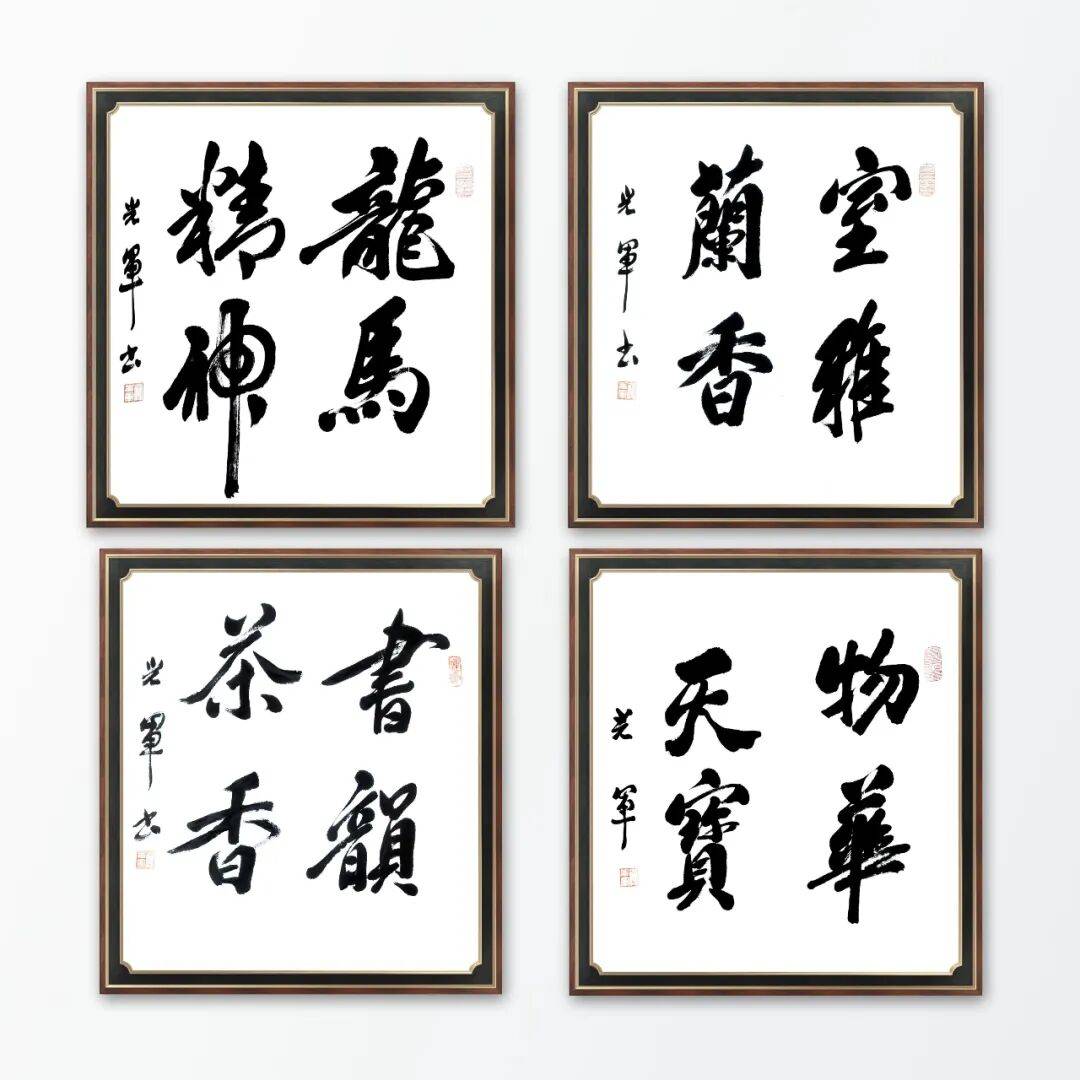 龍馬
精神
光軍书
室雅
蘭香
光軍书
書韻
茶香
光軍书
物華
天寶
光军